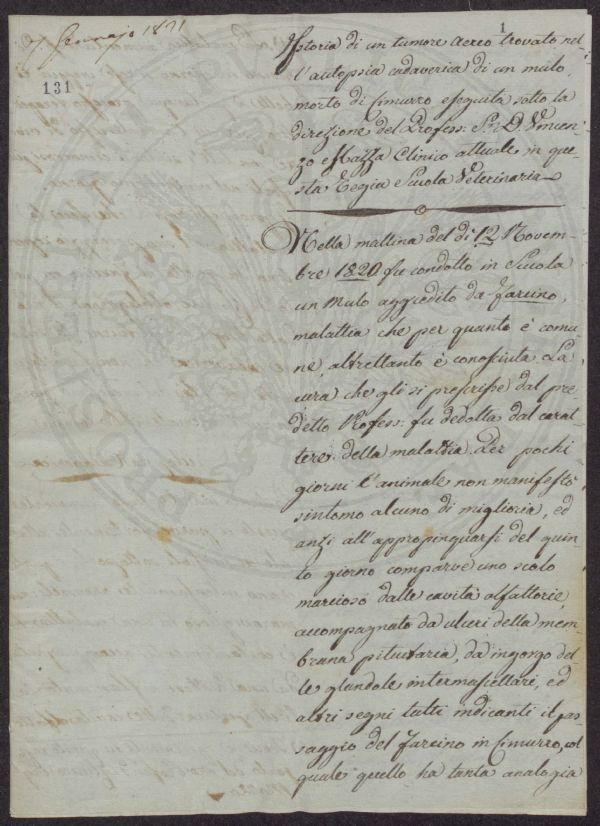 7. Gennajo 1821
1
131
Istoria di un tumore aereo trovato nel
l'autopsia cadaverica di un mulo,
morto di cimurro eseguita sotto la
direzione del Profess: Sr: D. Vincen
zo Mazza Clinico attuale in que
sta Regia Scuola Veterinaria
Nella mattina del dì 12 Novem-
bre 1820 fu condotto in Scuola
un Mulo aggredito da farcino,
malattia che per quanto è comu
ne, altrettanto è conosciuta. La
cura che gli si prescrisse dal pre
detto Profess: fu dedotta dal carat
tere della malattia. Per pochi
giorni l'animale non manifestò
sintomo alcuno di miglioria, ed
anzi all'appropinquarsi del quin
to giorno comparve uno scolo
marcioso dalle cavità olfattorie,
accompagnato da ulceri della mem
brana pituitaria, da ingorgo del
le glandole intermascellari, ed
altri segni tutti indicanti il pas
saggio del farcino in cimurro, col
quale quello ha tanta analogia